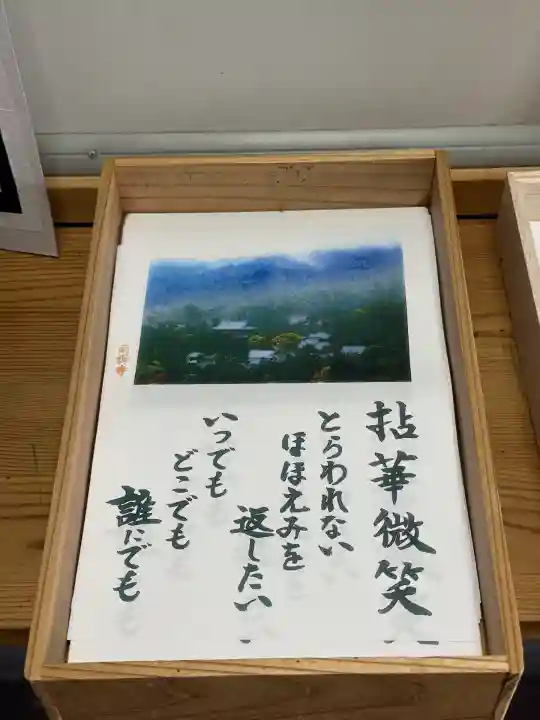 拈華微笑
とらわれない
ほほえみを
返したい
いつでも
どこでも
誰にでも